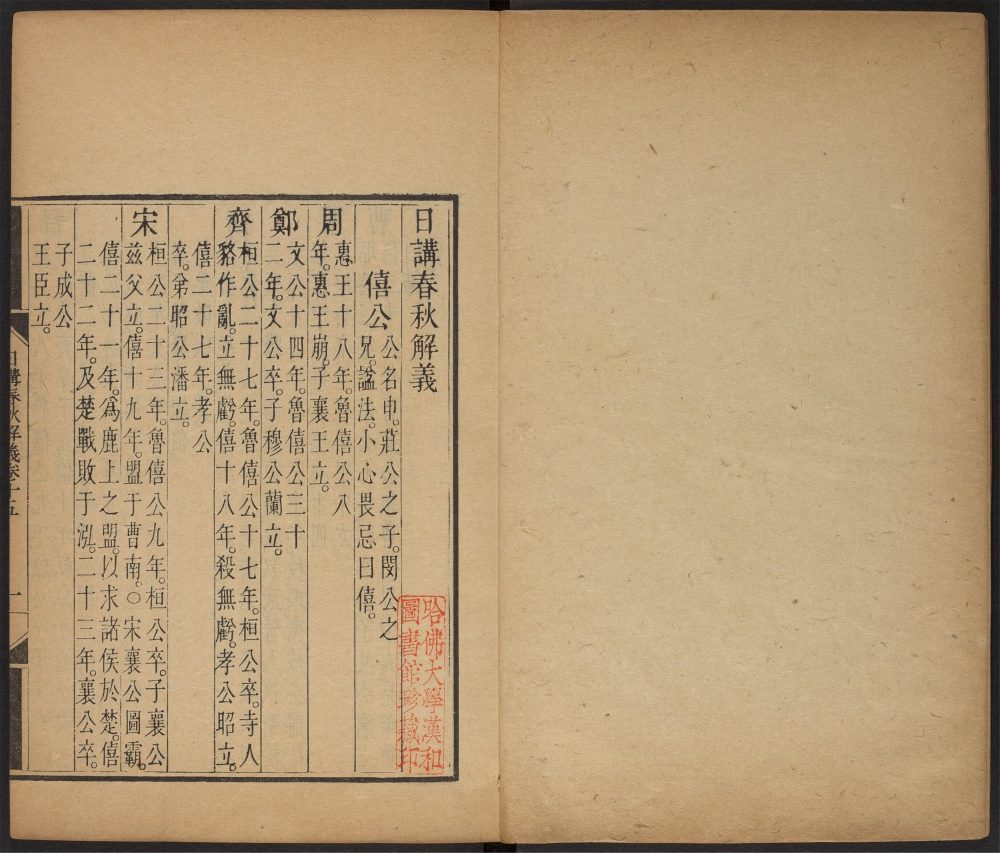 日講春秋解義
僖公
公名申。莊公之子。閔公之
兄。諡法。小心畏忌曰僖。
周
惠王十八年。魯僖公八
年。惠王崩。子襄王立。
鄭
文公十四年。魯僖公三十
二年。文公卒。子穆公蘭立。
齊
桓公二十七年。魯僖公十七年。桓公卒。寺人
貉作亂。立無虧。僖十八年。殺無虧。孝公昭立。
僖二十七年。孝公
卒。弟昭公潘立。
宋
桓公二十三年。魯僖公九年。桓公卒。子襄公
茲父立。僖十九年。盟于曹南。○宋襄公圖霸。
僖二十一年。爲鹿上之盟。以求諸侯於楚。僖
二十二年。及楚戰敗于泓。二十三年。襄公卒。
子成公
王臣立。
日講春秋解義卷十五
一
哈佛大學漢和
圖書館珍藏印